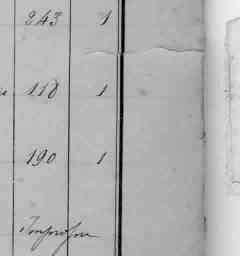 243 1
118 1
190 1